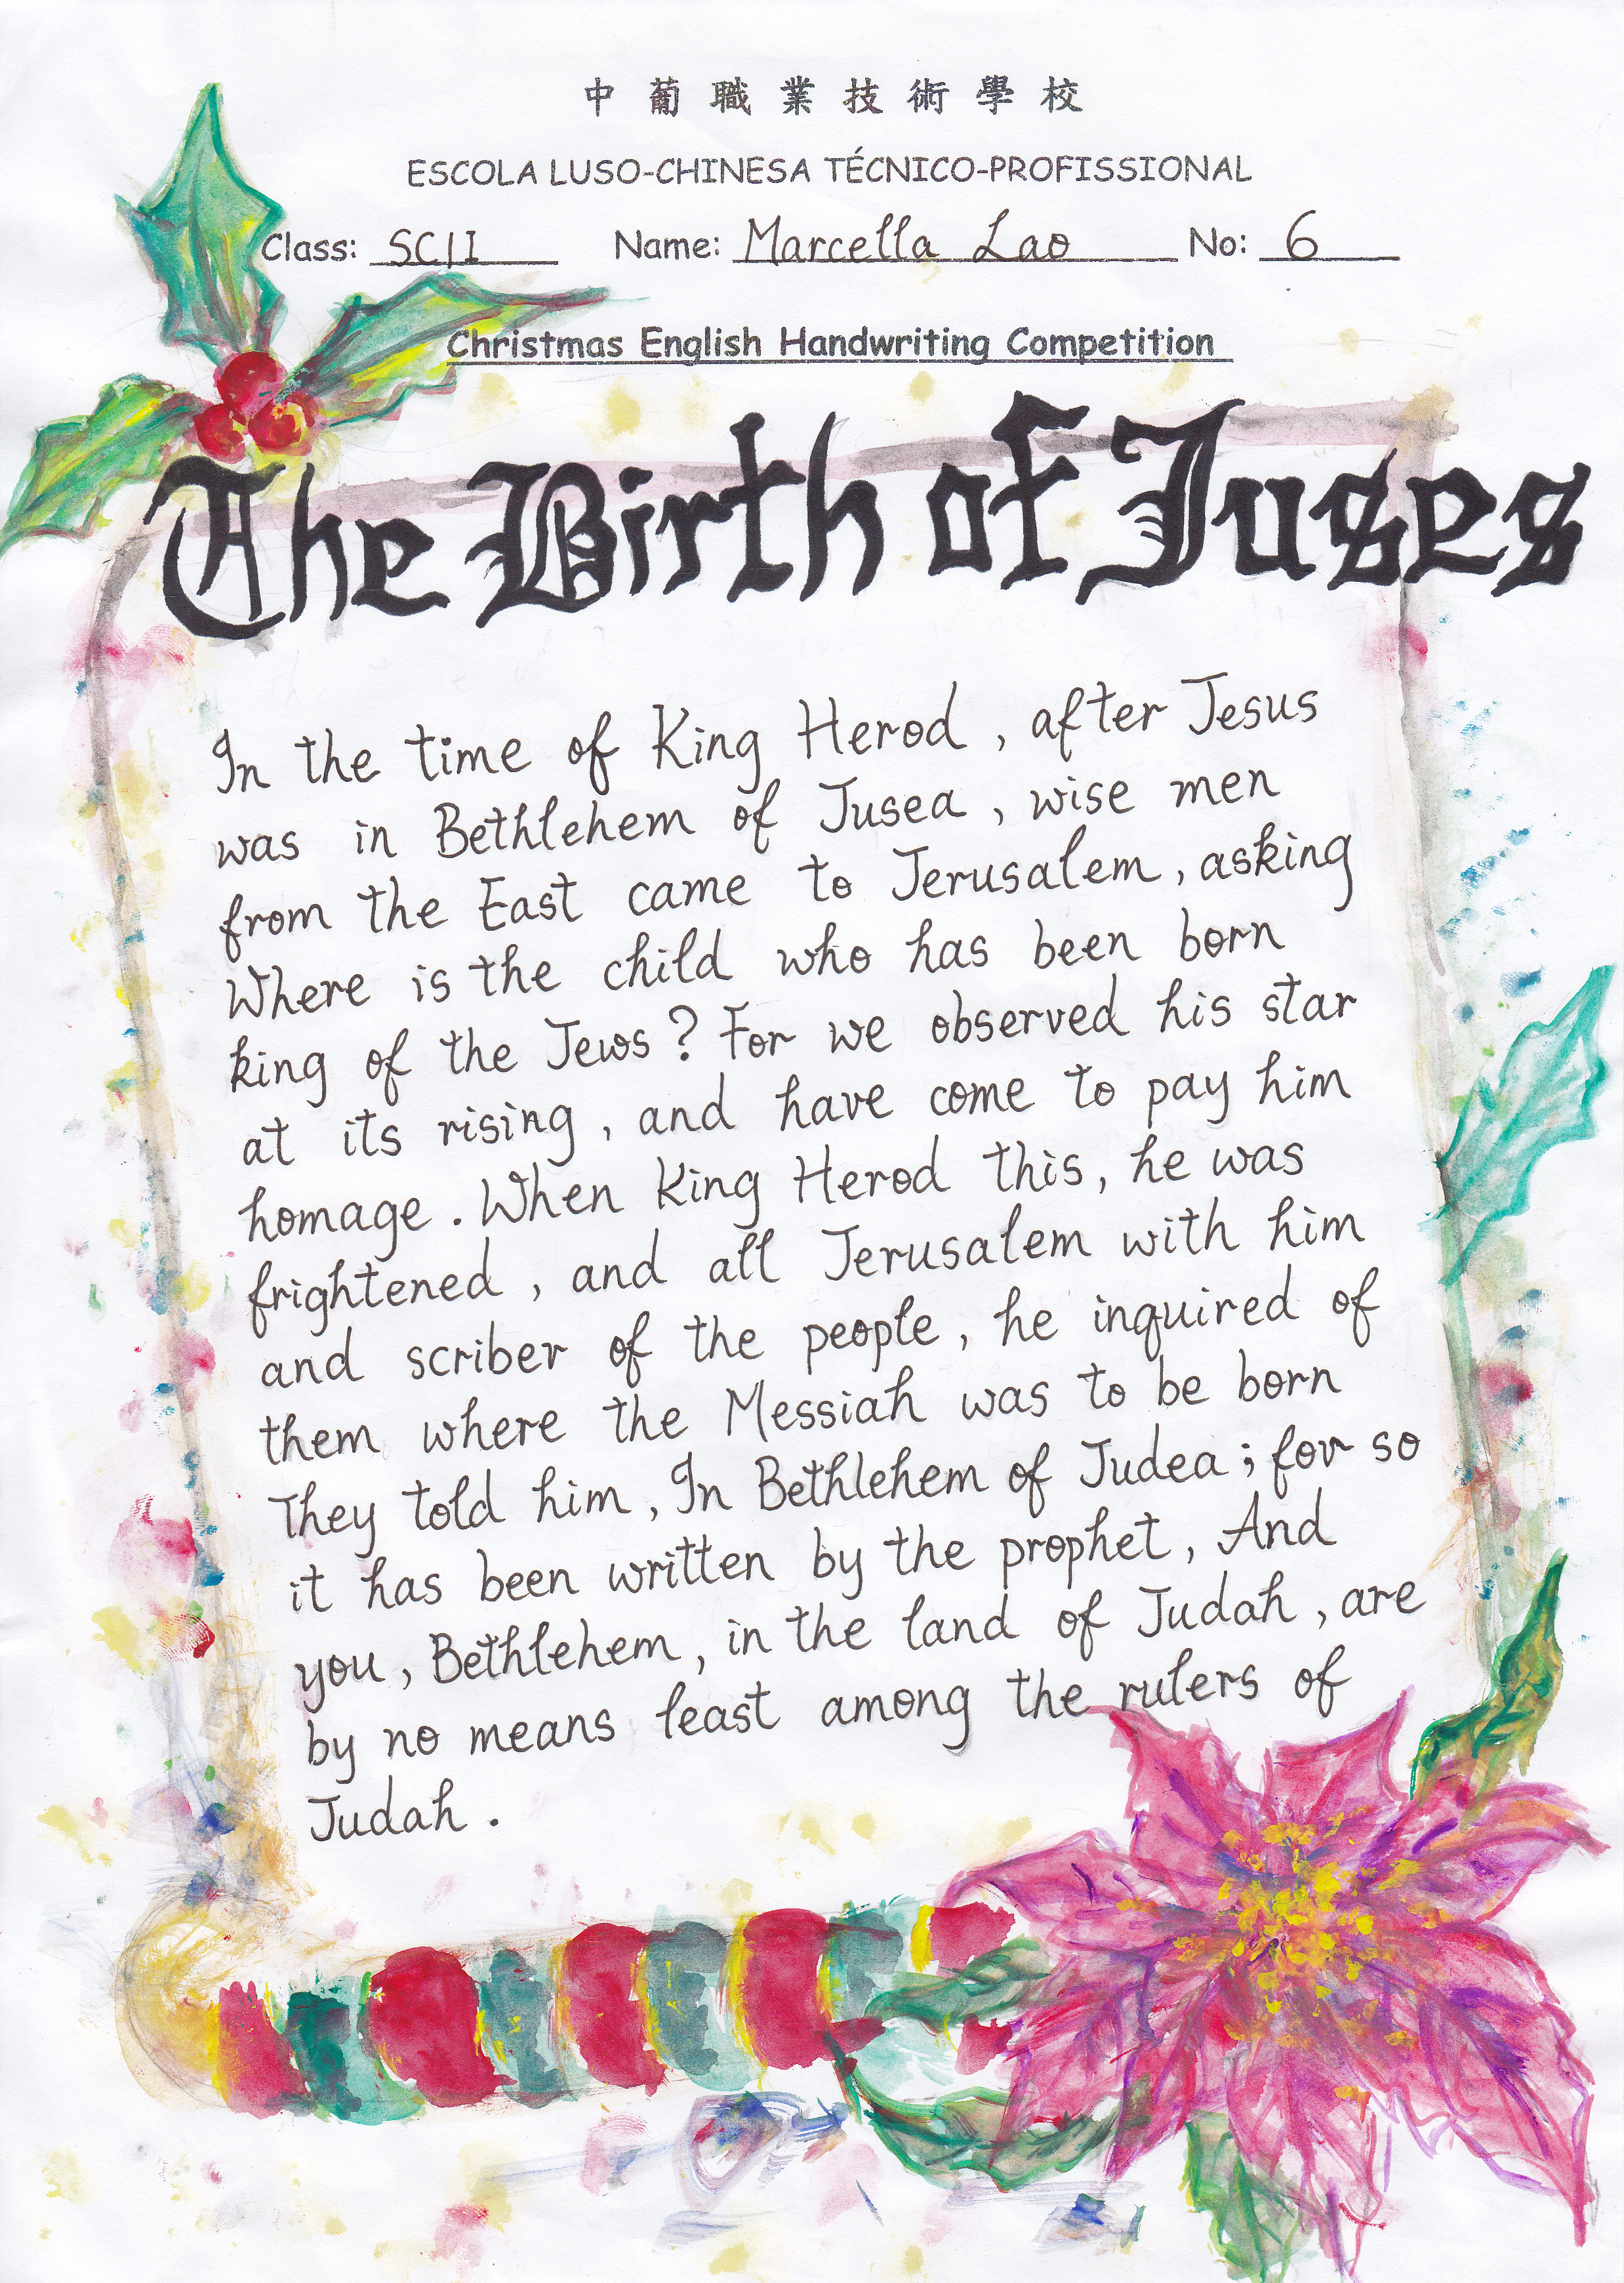 中葡職業技術學校
ESCOLA LUSO-CHINESA TÉCNICO-PROFISSIONAL
Class: SC1I Name: Marcella Lao No: 6
Christmas English Handwriting Competition
The Birth of Juses
In the time of King Herod, after Jesus
was in Bethlehem of Jusea, wise men
from the East came to Jerusalem, asking
Where is the child who has been born
king of the Jews? For we observed his star
at its rising, and have come to pay him
homage. When King Herod this, he was
frightened, and all Jerusalem with him
and scriber of the people, he inquired of
them where the Messiah was to be born
They told him, In Bethlehem of Judea; for so
it has been written by the prophet, And
you, Bethlehem, in the land of Judah, are
by no means least among the rulers of
Judah.